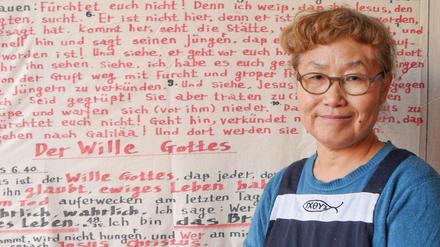 auen: Fürchtet euch nicht! Denn ich weiß, daß ihr
6.
sucht. Er ist nicht hier, denn er ist
esagt hat. Kommt her, seht die Stätte,
nell hin und sagt seinen Jüngern, daß
orden ist! Und siehe, er geht vor euch
ihr ihn sehen. Siehe, ich habe es euch
der Gruft weg mit Furcht und großer
Jüngern zu verkünden. 9. Und siehe, Jesus
ch: Seid gegrüßt! Sie aber traten
üße und warfen sich (vor ihm) nieder. 10.
ürchtet euch nicht! Geht hin, verkündet
ehen nach Galiläa! Und dort werden sie
Der Wille Gottes
6.40.
as ist der Wille Gottes, daß jeder, de
ihn glaubt, ewiges Leben
auferwecken am letzten Tag
ahrlich, wahrlich, ich sage: Wer
es Leben. 48. Ich bin das Br
ommt, wird nicht hungern, und Wer an mi
Jesus Christus.
ΙΧΘΥΣ